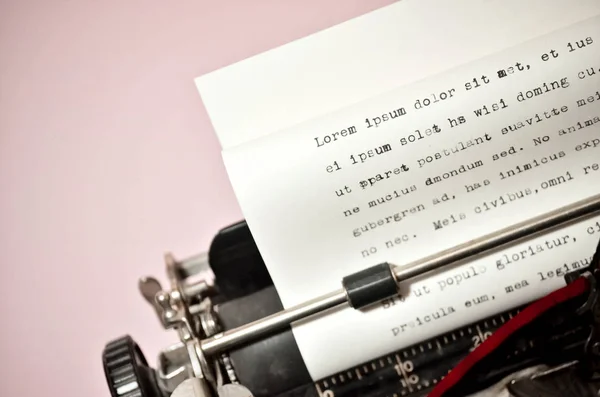 Lorem ipsum dolor sit amet, et ius
ei ipsum solet hs wisi doming cu,
ut pparet postulant suavitte mei
ne mucius dmondum sed. No anima
gubergren ad, has inimicus exp
no nec. Meis civibus,omni re
ut populo gloriatur, ci
praicula eum, mea legimu
10
20